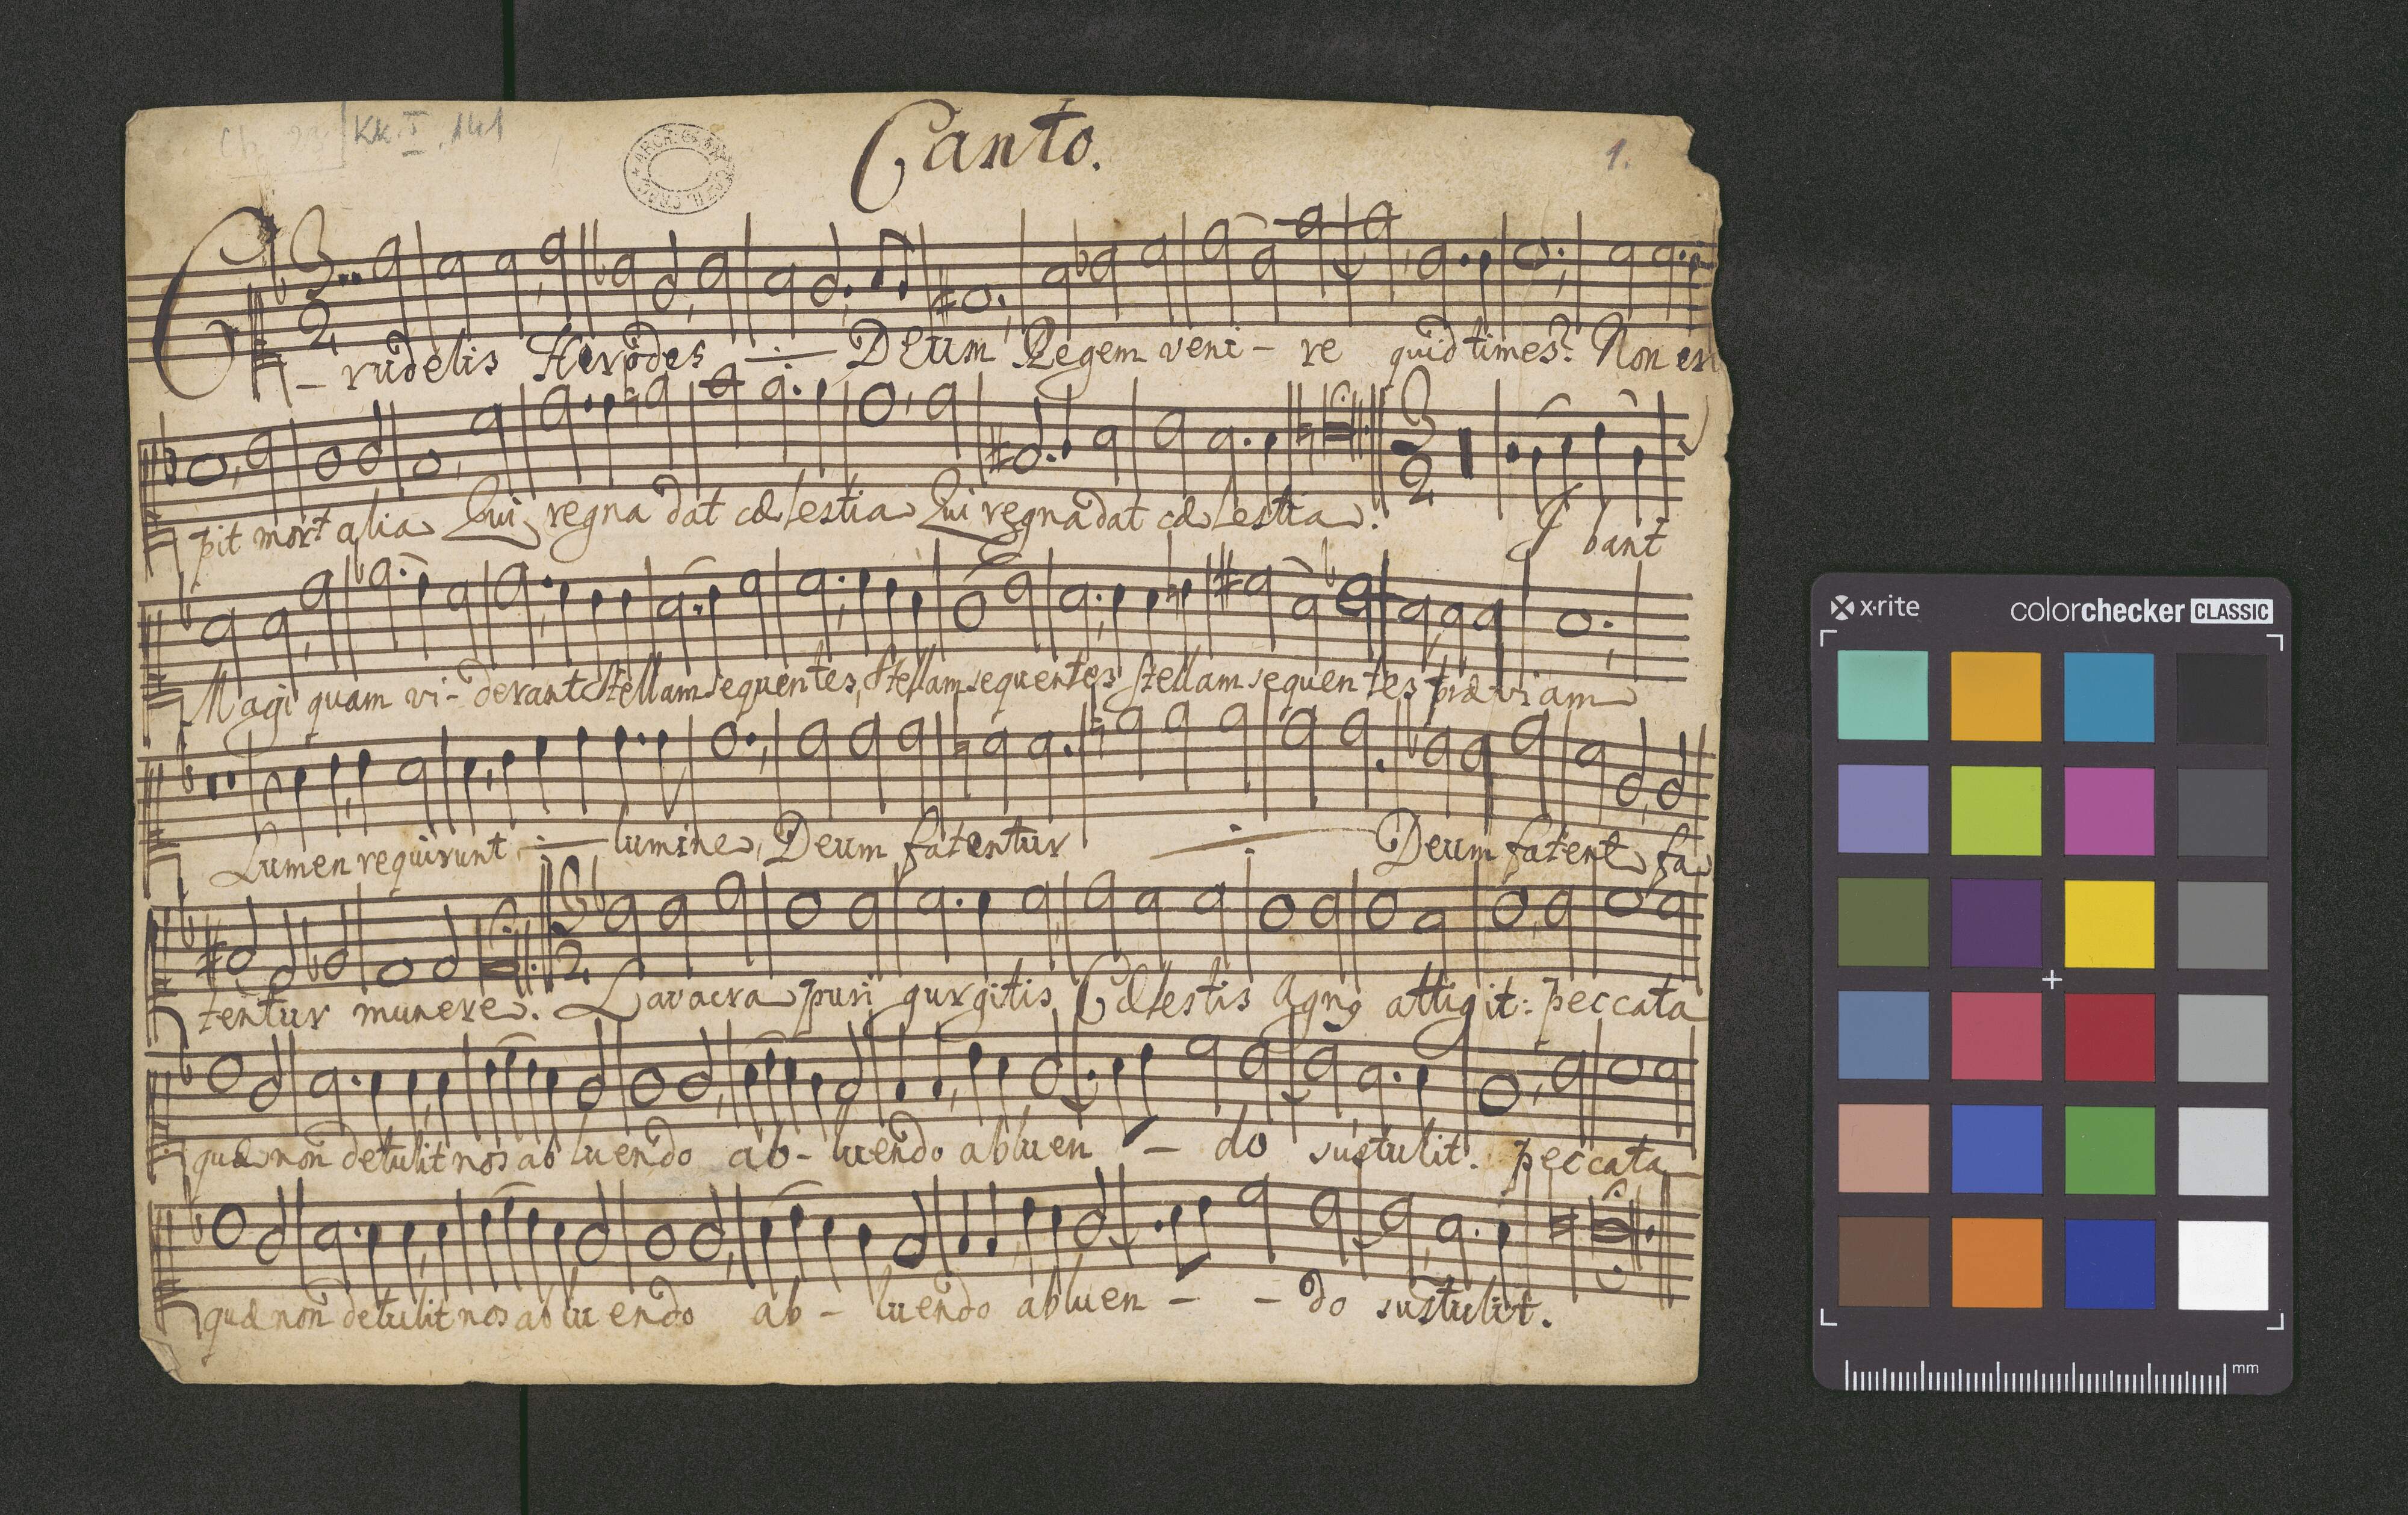 KK. I. 141
Canto.
1.
Crudelis Herodes Deum Regem veni - re quid times? Non eri
pit mortalia Qui regna dat cælestia Qui regna dat cælestia.
I bant
Magi quam vi - derant Stellam sequentes, Stellam sequentes Stellam sequentes præviam
Lumen requirunt lumine, Deum fatentur Deum fatent fa
tentur munere. Lavacra puri gurgitis Cælestis Agng attigit: peccata
quæ non detulit nos abluendo ab - luendo abluen - do sustulit. peccata
quæ non detulit nos abluendo ab - luendo abluen - - do sustulit.
x·rite colorchecker CLASSIC
mm